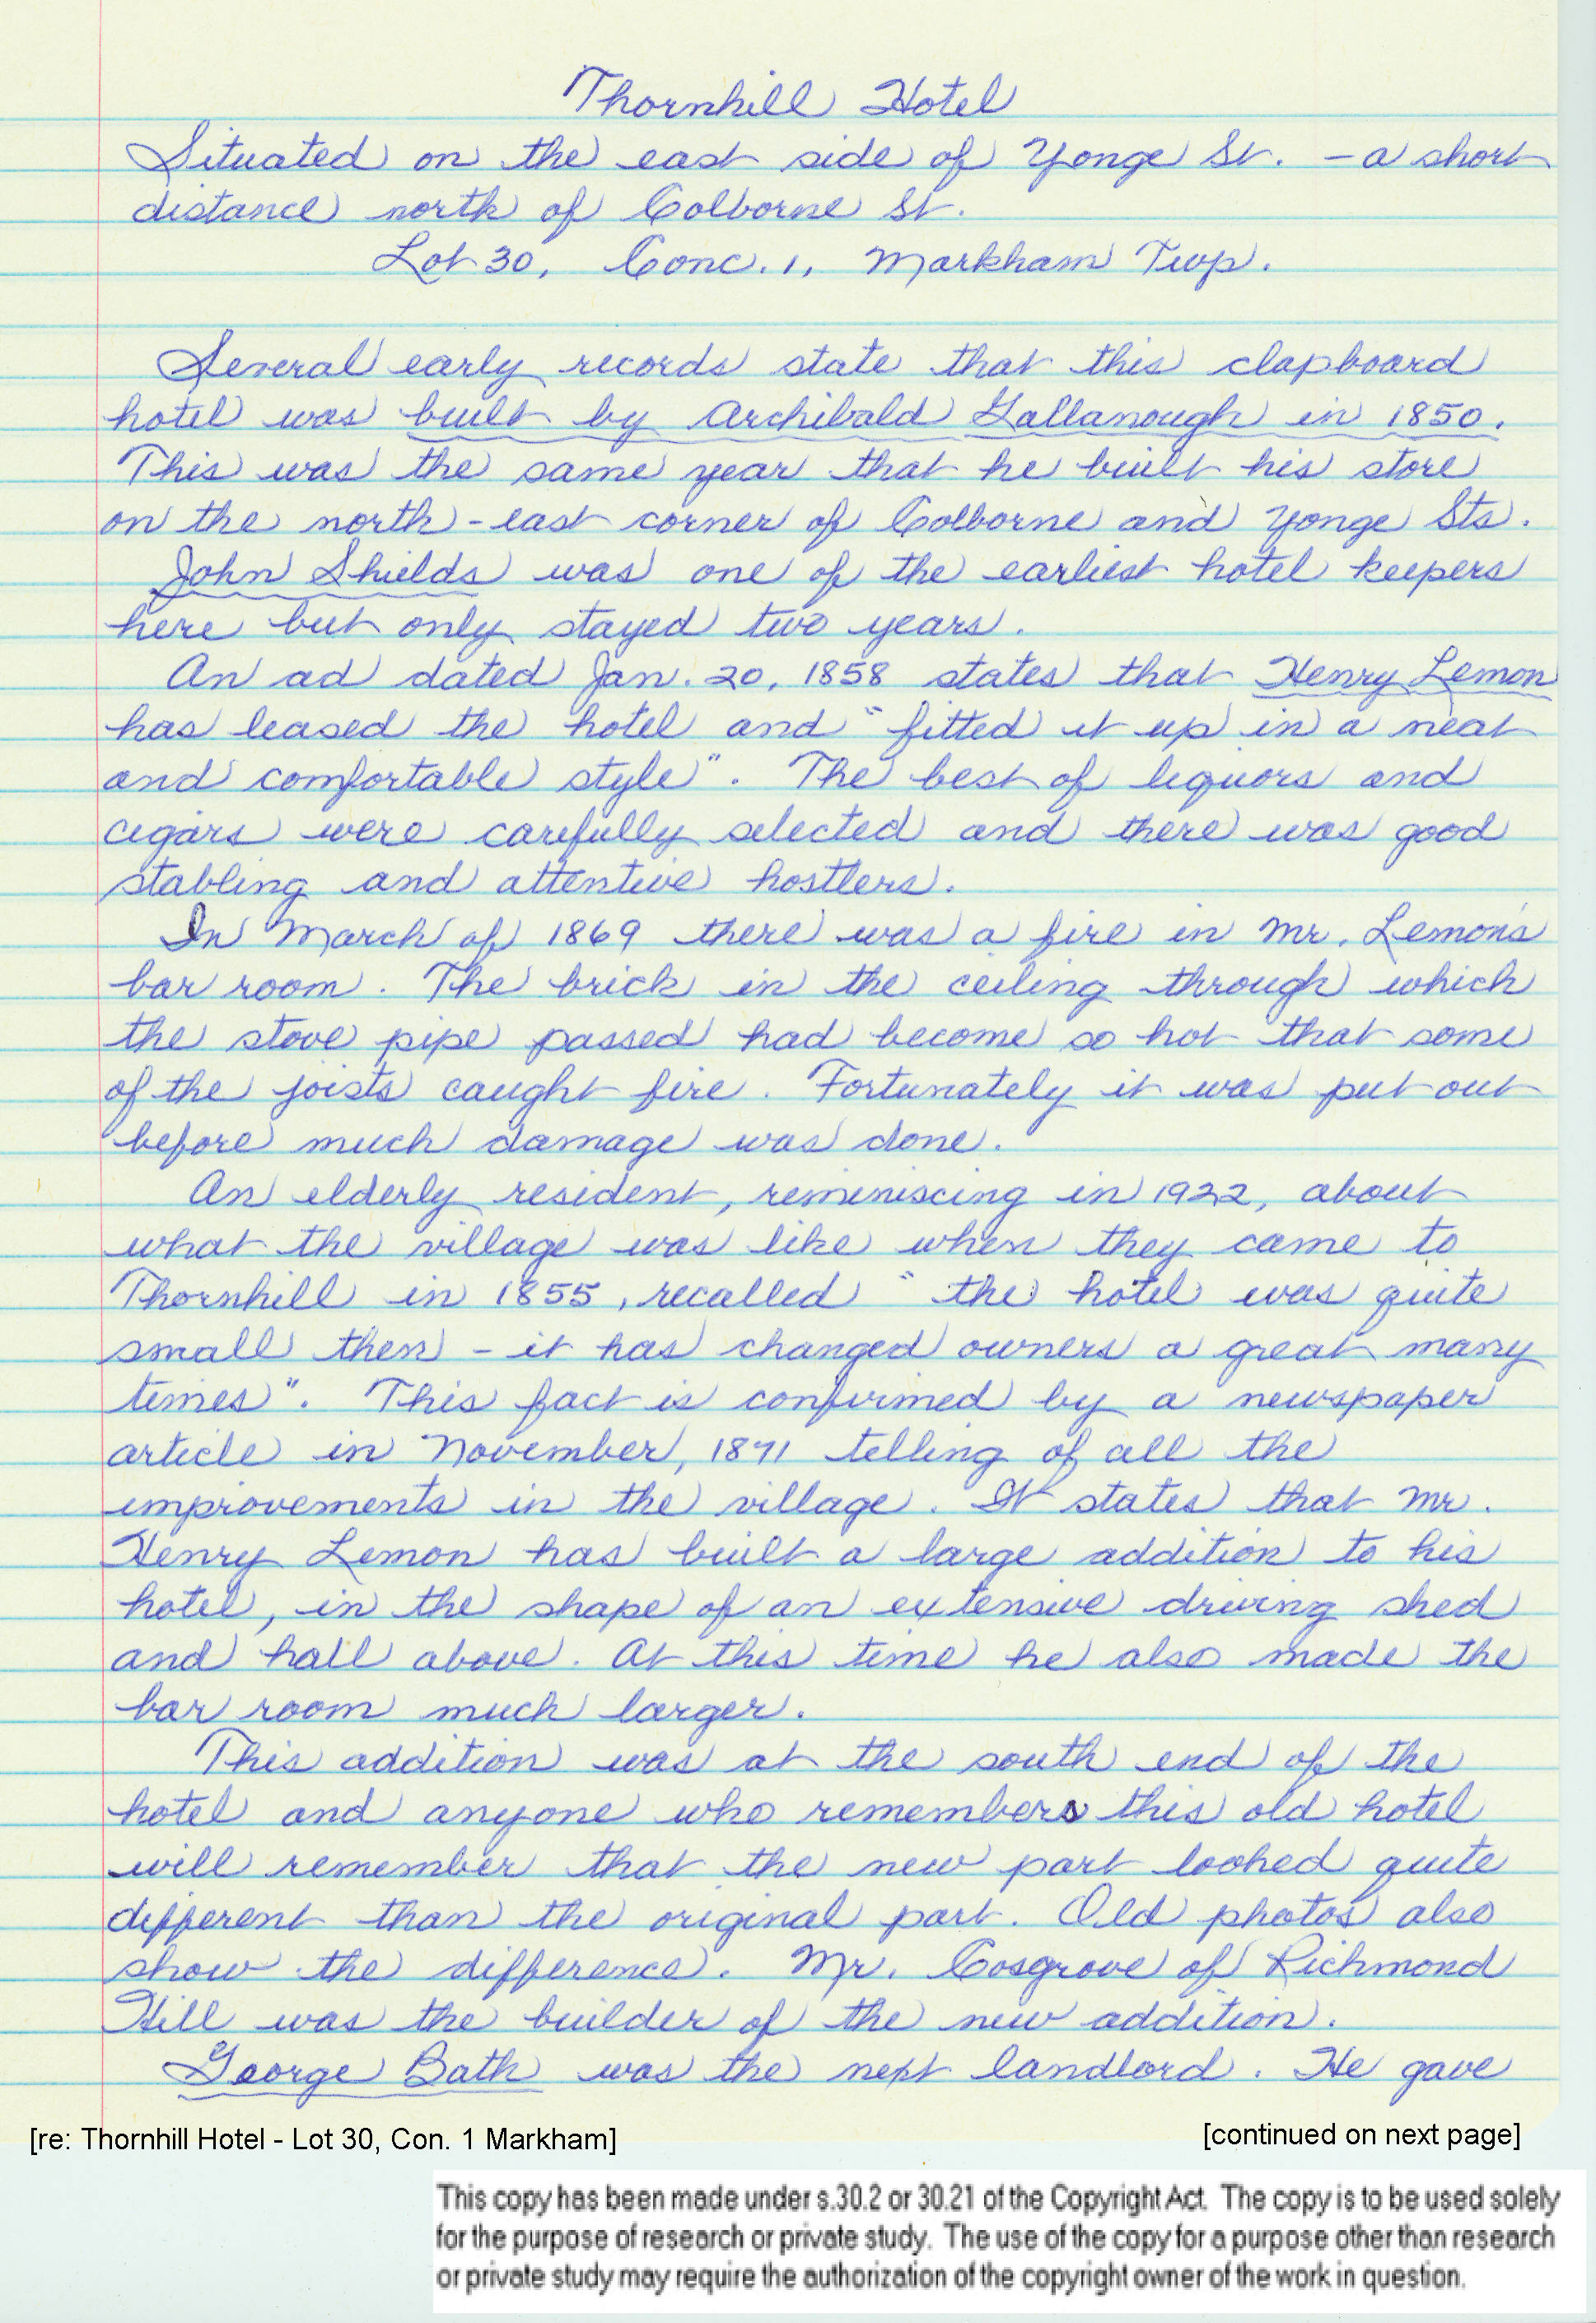 Thornhill Hotel
Situated on the east side of Yonge St. - a short
distance north of Colborne St.
Lot 30, Conc. 1, Markham Twp.
Several early records state that this clapboard
hotel was built by Archibald Gallanough in 1850.
This was the same year that he built his store
on the north-east corner of Colborne and Yonge Sts.
John Shields was one of the earliest hotel keepers
here but only stayed two years.
An ad dated Jan. 20, 1858 states that Henry Lemon
has leased the hotel and "fitted it up in a neat
and comfortable style". The best of liquors and
cigars were carefully selected and there was good
stabling and attentive hostlers.
In March of 1869 there was a fire in Mr. Lemon's
bar room. The brick in the ceiling through which
the stove pipe passed had become so hot that some
of the joists caught fire. Fortunately it was put out
before much damage was done.
An elderly resident, reminiscing in 1922, about
what the village was like when they came to
Thornhill in 1855, recalled "the hotel was quite
small then - it has changed owners a great many
times". This fact is confirmed by a newspaper
article in November, 1871 telling of all the
improvements in the village. It states that Mr.
Henry Lemon has built a large addition to his
hotel, in the shape of an extensive driving shed
and hall above. At this time he also made the
bar room much larger.
This addition was at the south end of the
hotel and anyone who remembers this old hotel
will remember that the new part looked quite
different than the original part. Old photos also
show the difference. Mr. Cosgrove of Richmond
Hill was the builder of the new addition.
George Bath was the next landlord. He gave
[re: Thornhill Hotel - Lot 30, Con. 1 Markham]
[continued on next page]
This copy has been made under s.30.2 or 30.21 of the Copyright Act. The copy is to be used solely
for the purpose of research or private study. The use of the copy for a purpose other than research
or private study may require the authorization of the copyright owner of the work in question.